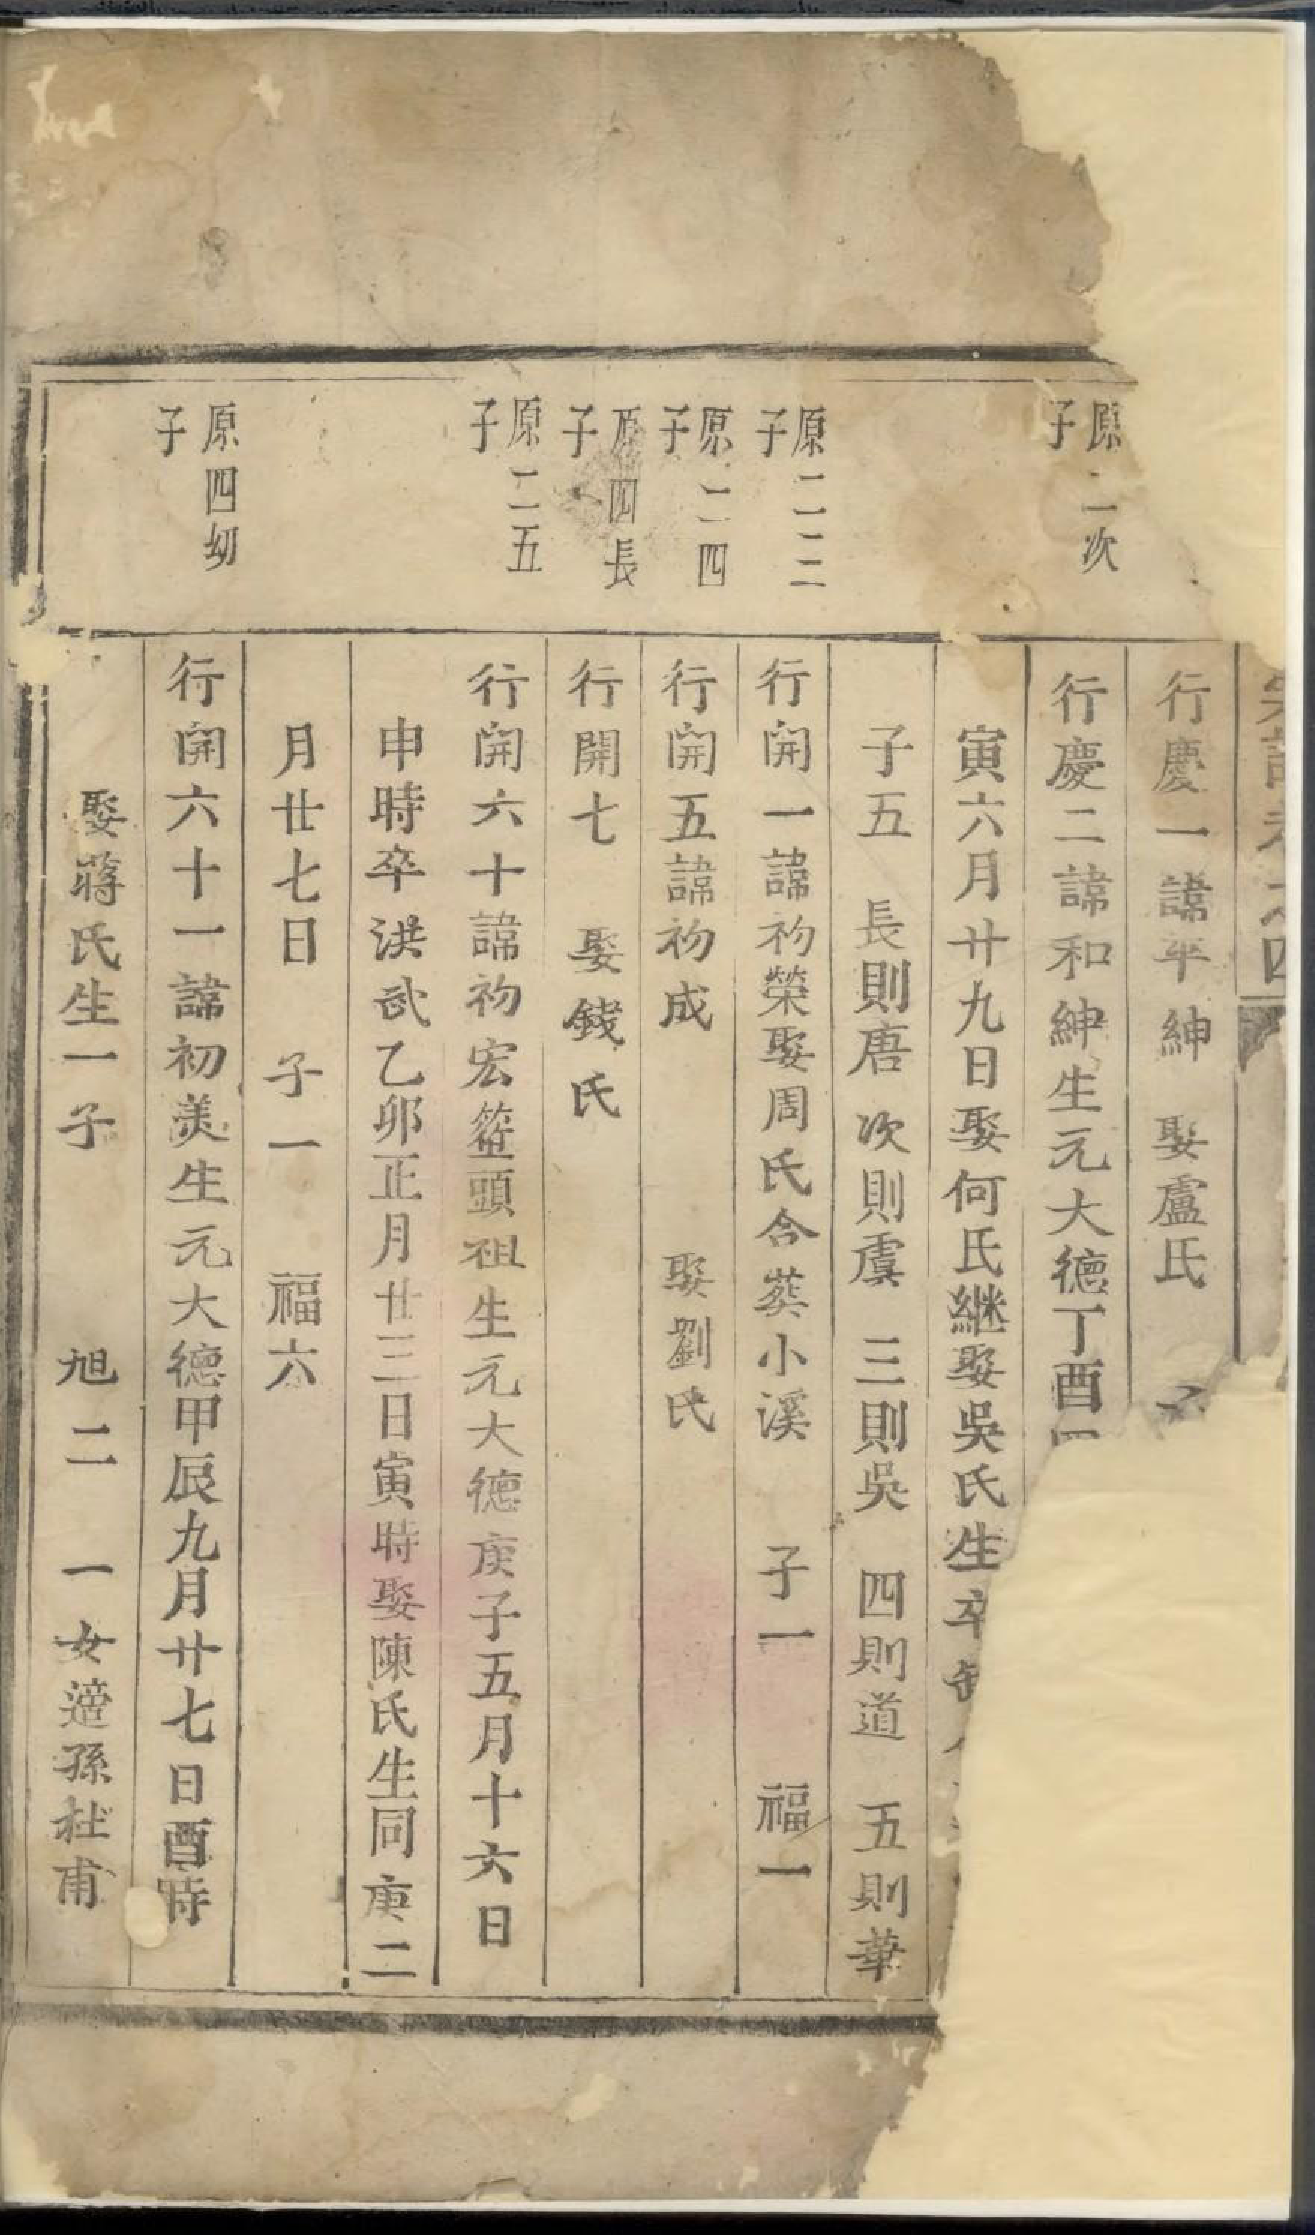 宗譜卷之四
行慶一諱平紳　娶盧氏　子
原二次子
行慶二諱和紳生元大德丁酉
寅六月廿九日娶何氏継娶吳氏生卒
子五　長則唐　次則虞　三則吳　四則道　五則華
原二二子
行開一諱初榮娶周氏合葬小溪　子一　福一
原二四子
行開五諱初成　娶劉氏
原四長子
行開七　娶錢氏
原二五子
行開六十諱初宏簽頭祖生元大德庚子五月十六日
申時卒洪武乙卯正月廿三日寅時娶陳氏生同庚二
月廿七日　子一　福六
原四幼子
行開六十一諱初美生元大德甲辰九月廿七日酉時
娶蔣氏生一子　旭二　一女適孫杜甫